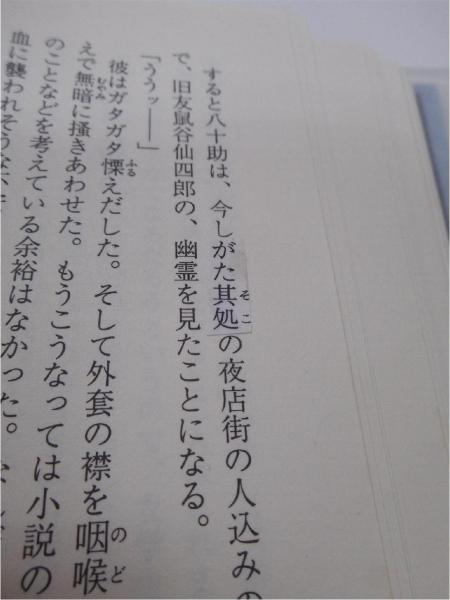 すると八十助は、今しがた其処の夜店街の人込みの
で、旧友鼠谷仙四郎の、幽霊を見たことになる。
「ううッ――」
彼はガタガタ慄えだした。そして外套の襟を咽喉
えで無暗に掻きあわせた。もうこうなっては小説の
のことなどを考えている余裕はなかった。
血に襲われそうな